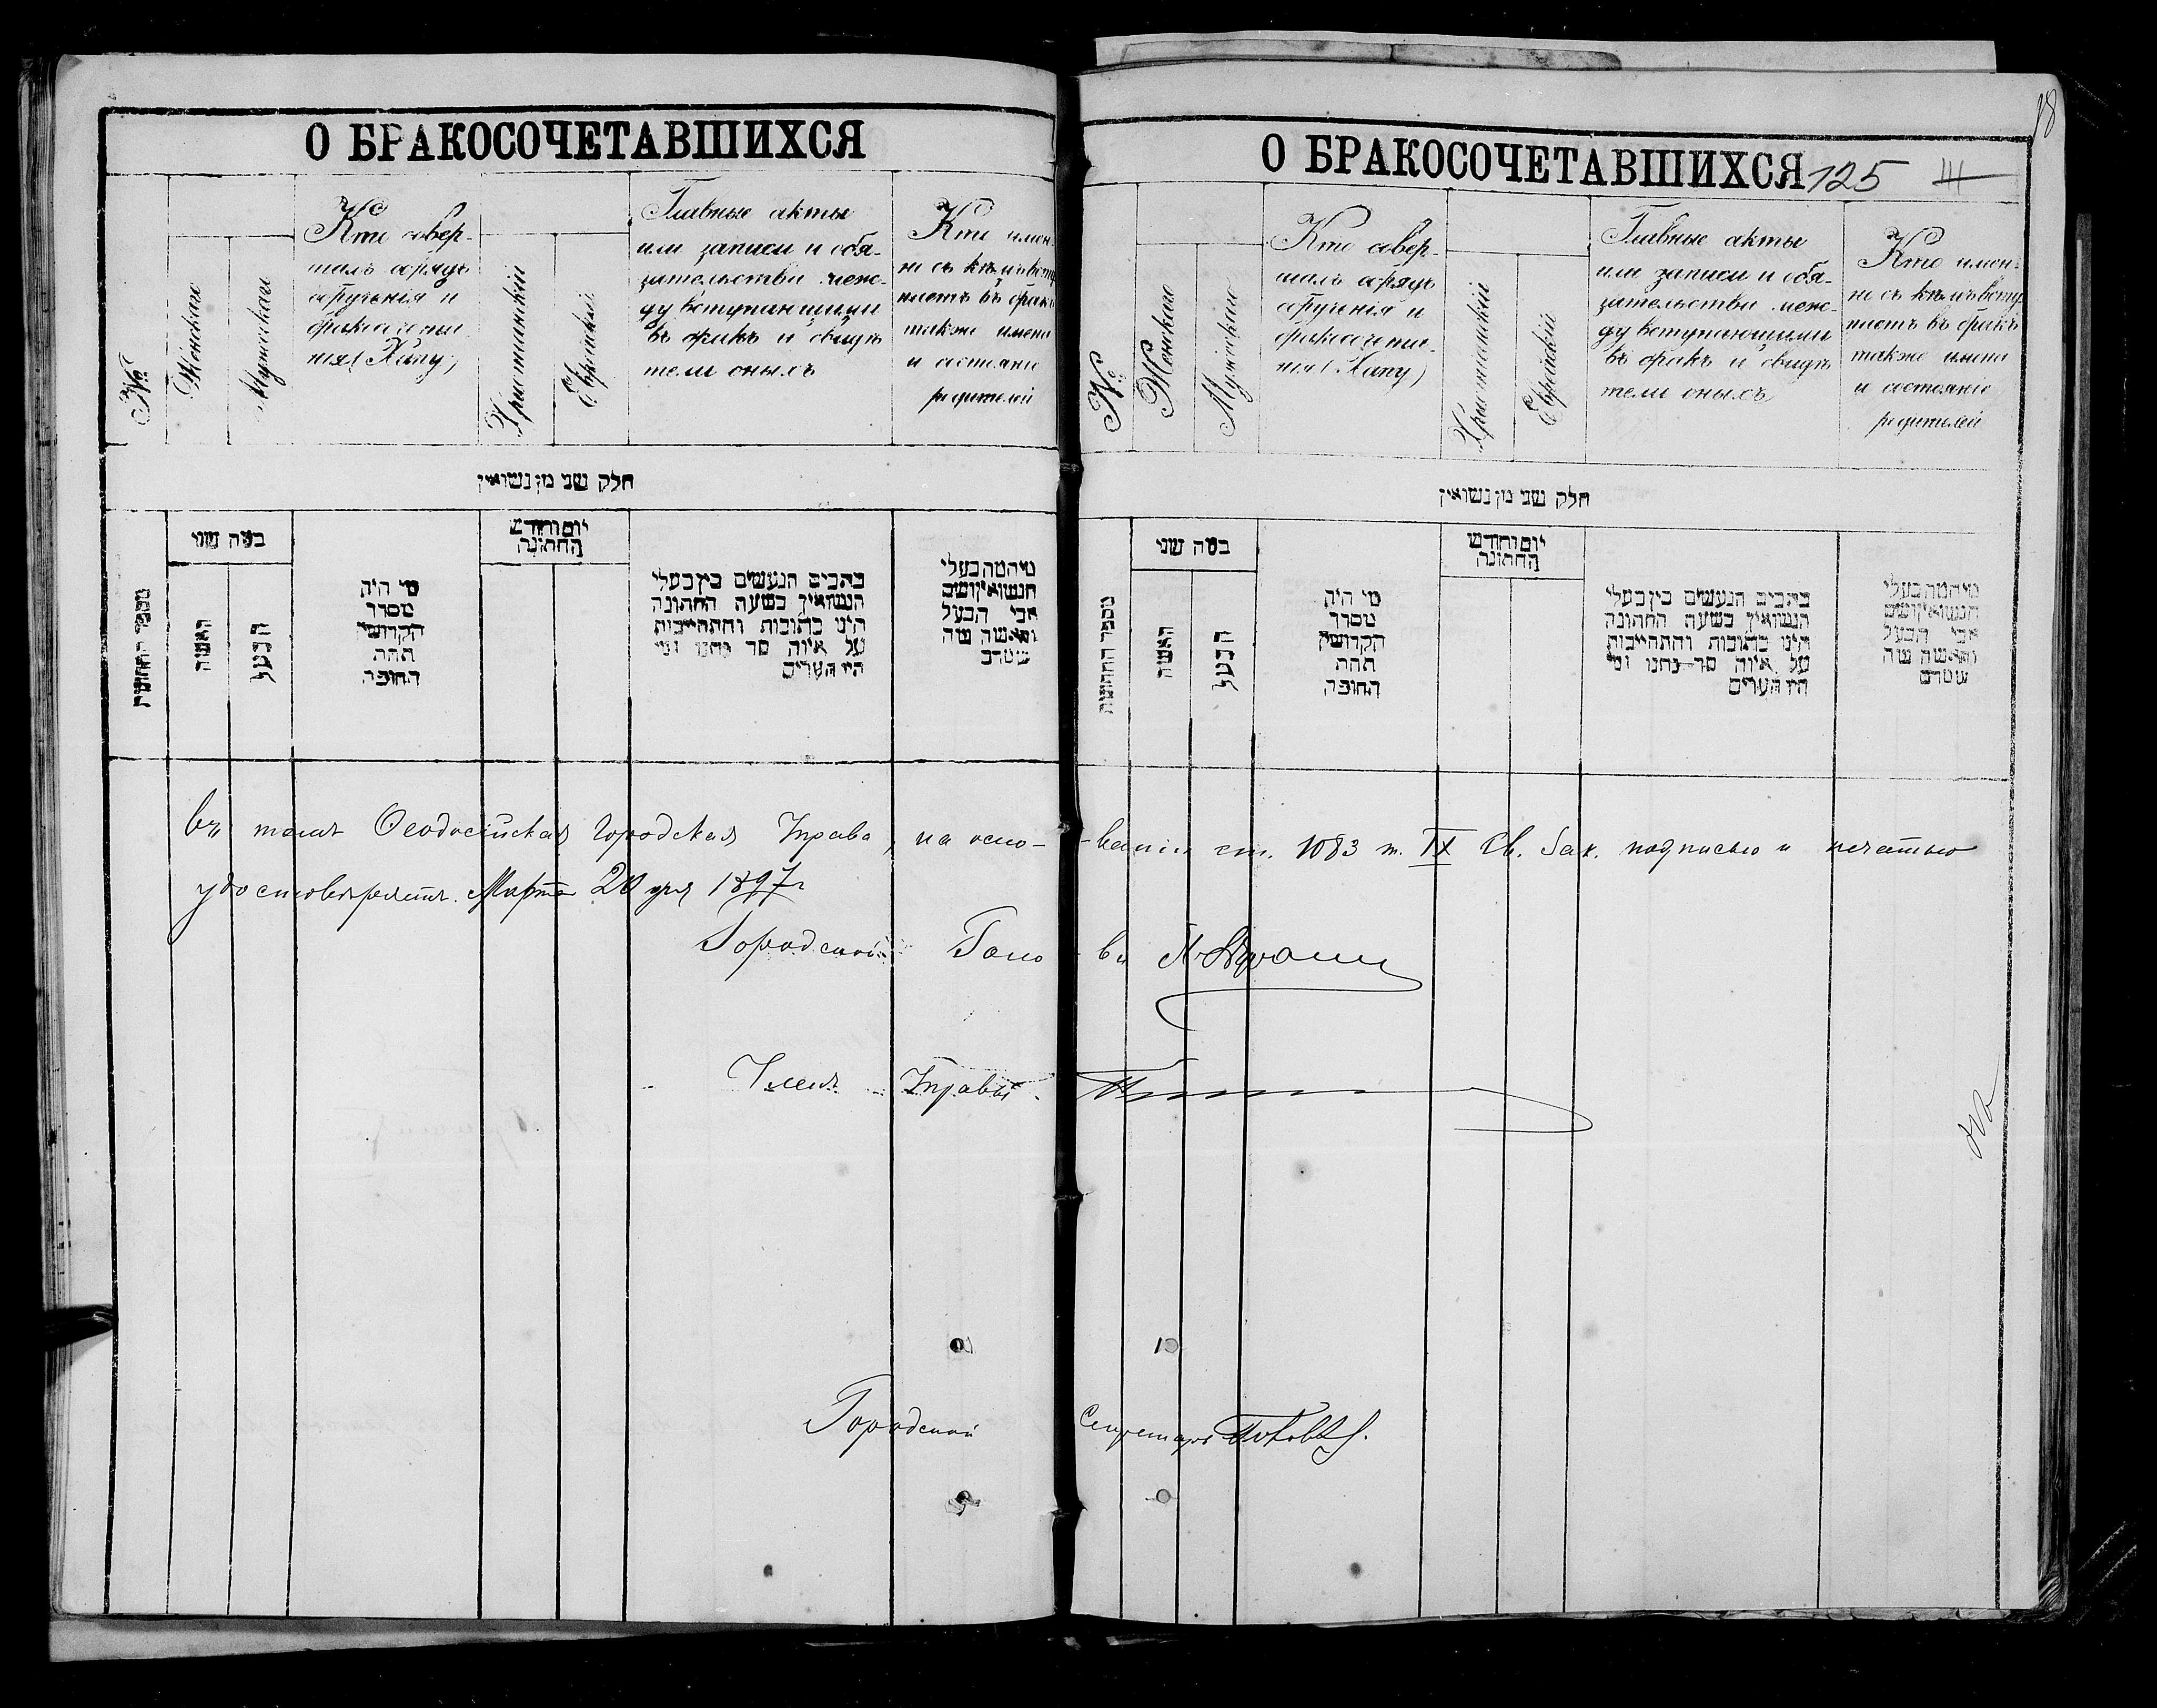 О БРАКОСОЧЕТАВШИХСЯ
№
Женскаго
Мужескаго
Кто совер-
шалъ обрядъ
обрученія и
бракосочета
нія (Хапу)
Христіанскій
Еврейскій
Главные акты
или записи и обя-
зательства меж-
ду вступающими
въ бракъ и свидѣ
тели оныхъ
Кто имен-
но съ кѣмъ всту
паетъ въ бракъ
также имена
и состояніе
родителей
חלק שני מן נשואין
מספר החתונות
כמה שני
האשה
הבעל
מי היה
מסדר
הקדושין
תחת
החופה
יום וחודש
החתונה
כתבים הנעשים בין בעלי
הנשואין בשעה החתונה
היינו כתובות והתחייבות
על איזה סך נתנו ומי
היו העדים
מי המה בעלי
הנשואין ושם
אבי הבעל
והאשה
О БРАКОСОЧЕТАВШИХСЯ 125
18
№
Женскаго
Мужескаго
Кто совер-
шалъ обрядъ
обрученія и
бракосочета-
нія (Хапу)
Христіанскій
Еврейскій
Главные акты
или записи и обя-
зательства меж-
ду вступающими
въ бракъ и свидѣ
тели оныхъ
Кто имен-
но съ кѣмъ всту
паетъ въ бракъ
также имена
и состояніе
родителей
חלק שני מן נשואין
מספר החתונות
כמה שני
האשה
הבעל
מי היה
מסדר
הקדושין
תחת
החופה
יום וחודש
החתונה
כתבים הנעשים בין בעלי
הנשואין בשעה החתונה
היינו כתובות והתחייבות
על איזה סך נתנו ומי
היו העדים
מי המה בעלי
הנשואין ושם
אבי הבעל
והאשה
въ томъ Ѳеодосійская Городская Управа, на осно- -ваніи ст. 1083 т. IX Св. Зак. подписью и печатью
удостовѣряетъ. Марта 20 дня 1897 г
Городской Голо - ва
Членъ Управы.
Городской Секретарь